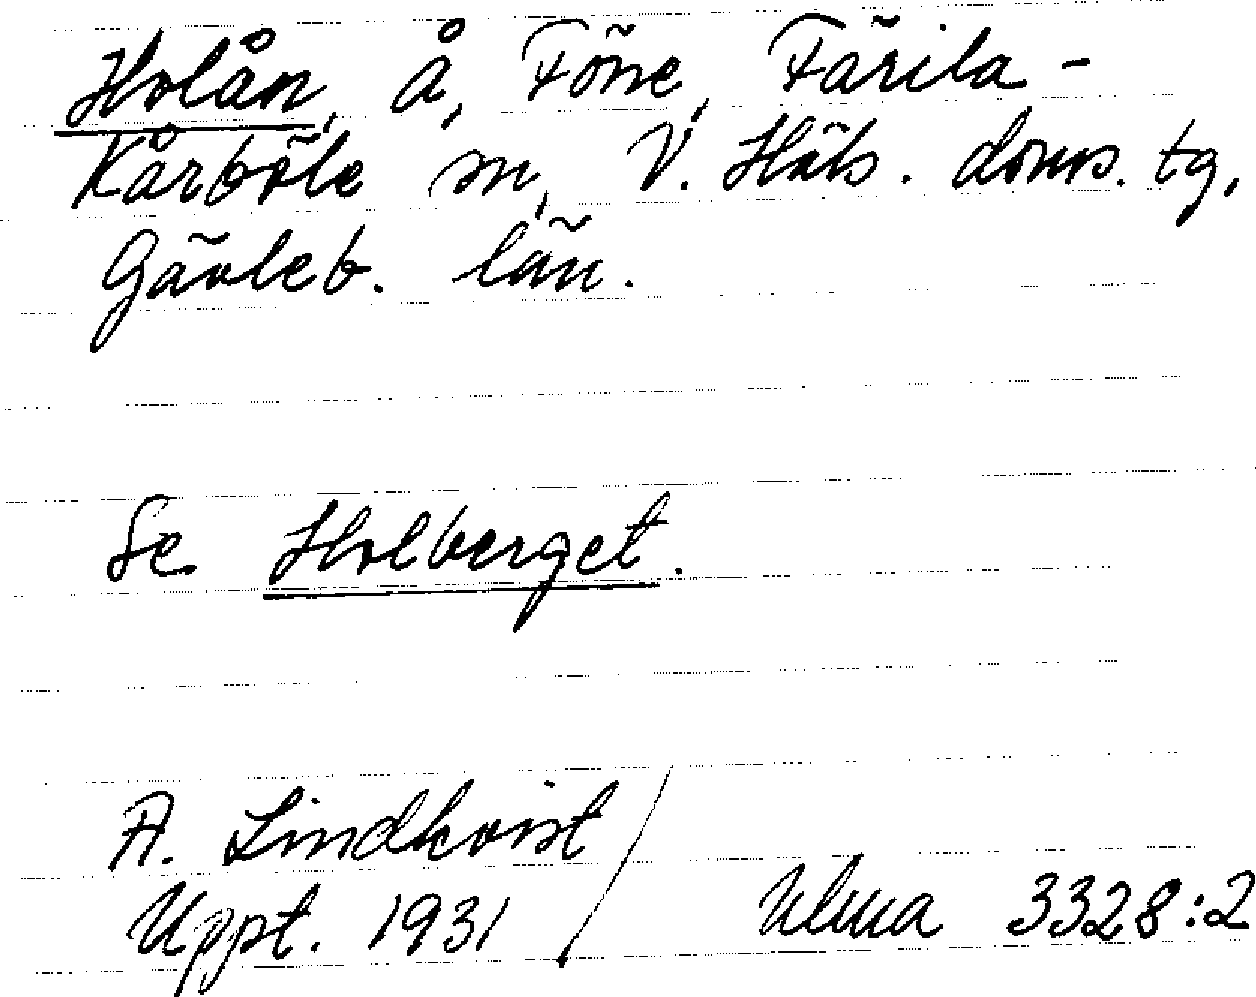 Holån, å, Föne, Färila -
Kårböle sn, V. Häls. doms. tg,
Gävleb. län.
Se Holberget.
A. Lindkvist
Uppt. 1931 / Ulma 3328:2